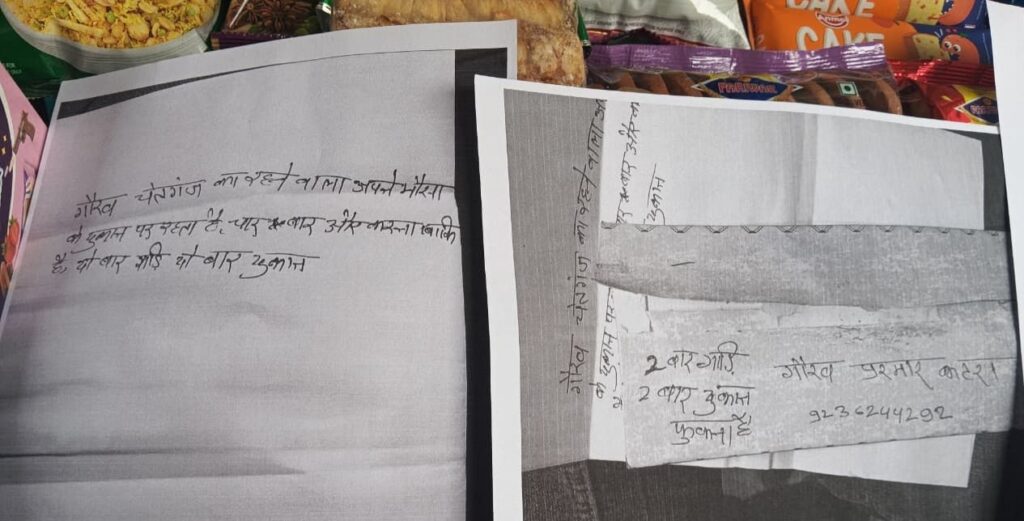 CAKE
CAKE
PARIWAR
गौरव चेतगंज का रहने वाला अपने मौसा
के दुकान पर रहता है, चार बार और करना बाकि
है, दो बार गाड़ि दो बार दुकान
गौरव चेतगंज का रहने वाला
के दुकान पर
बार और
दुकान
2 बार गाड़ि
2 बार दुकान
फुकना है
गौरव परमार कटरा
9236244292